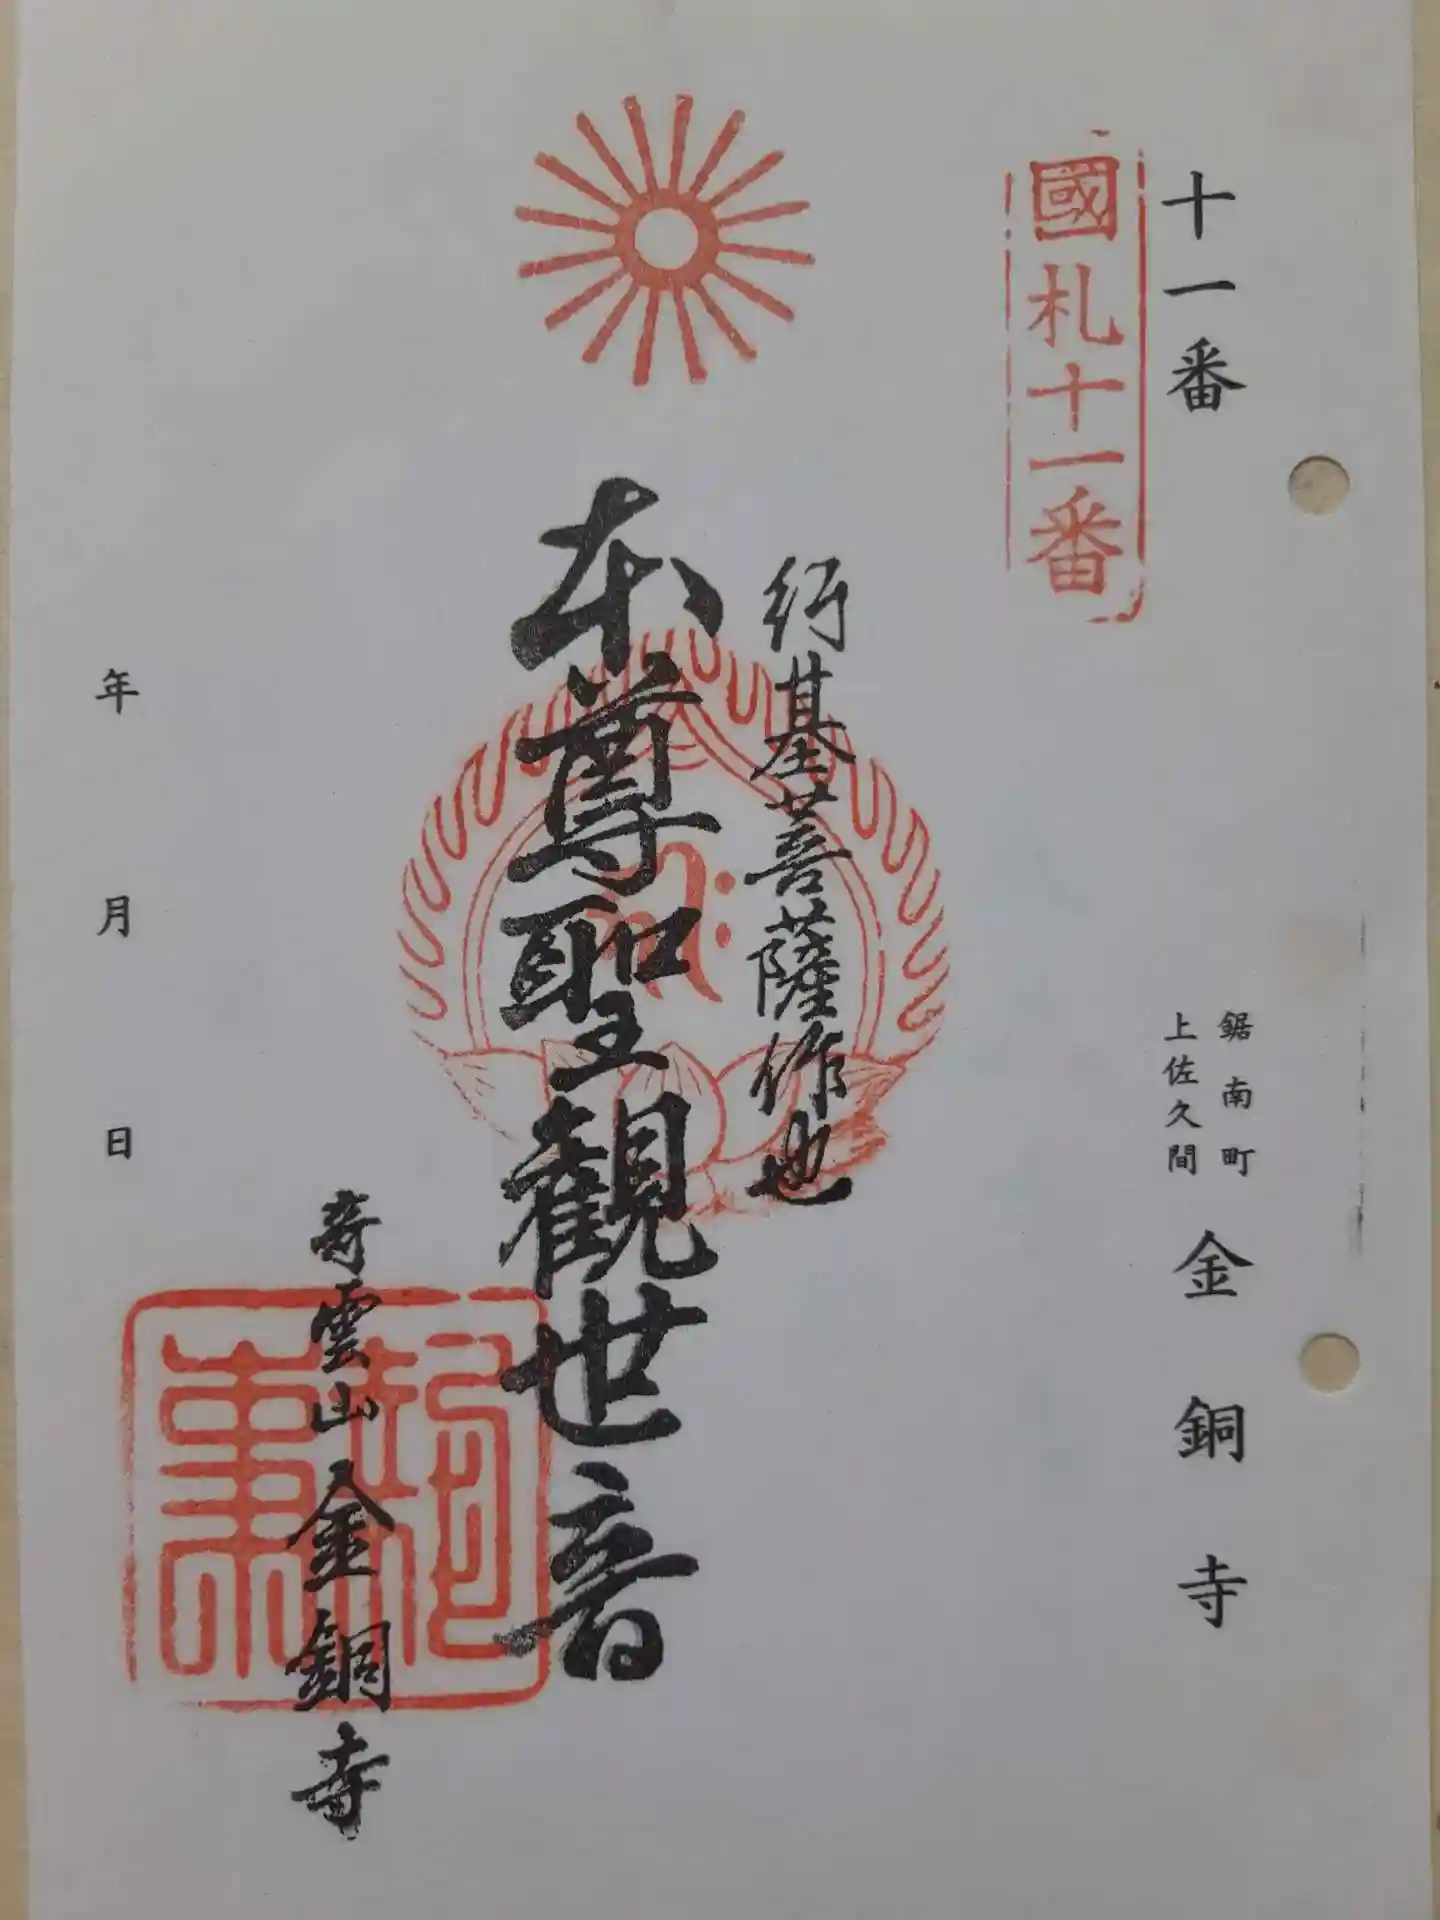 十一番
鋸南町
上佐久間
金銅寺
國札十一番
行基菩薩作也
本尊聖観世音
奇雲山金銅寺
年月日